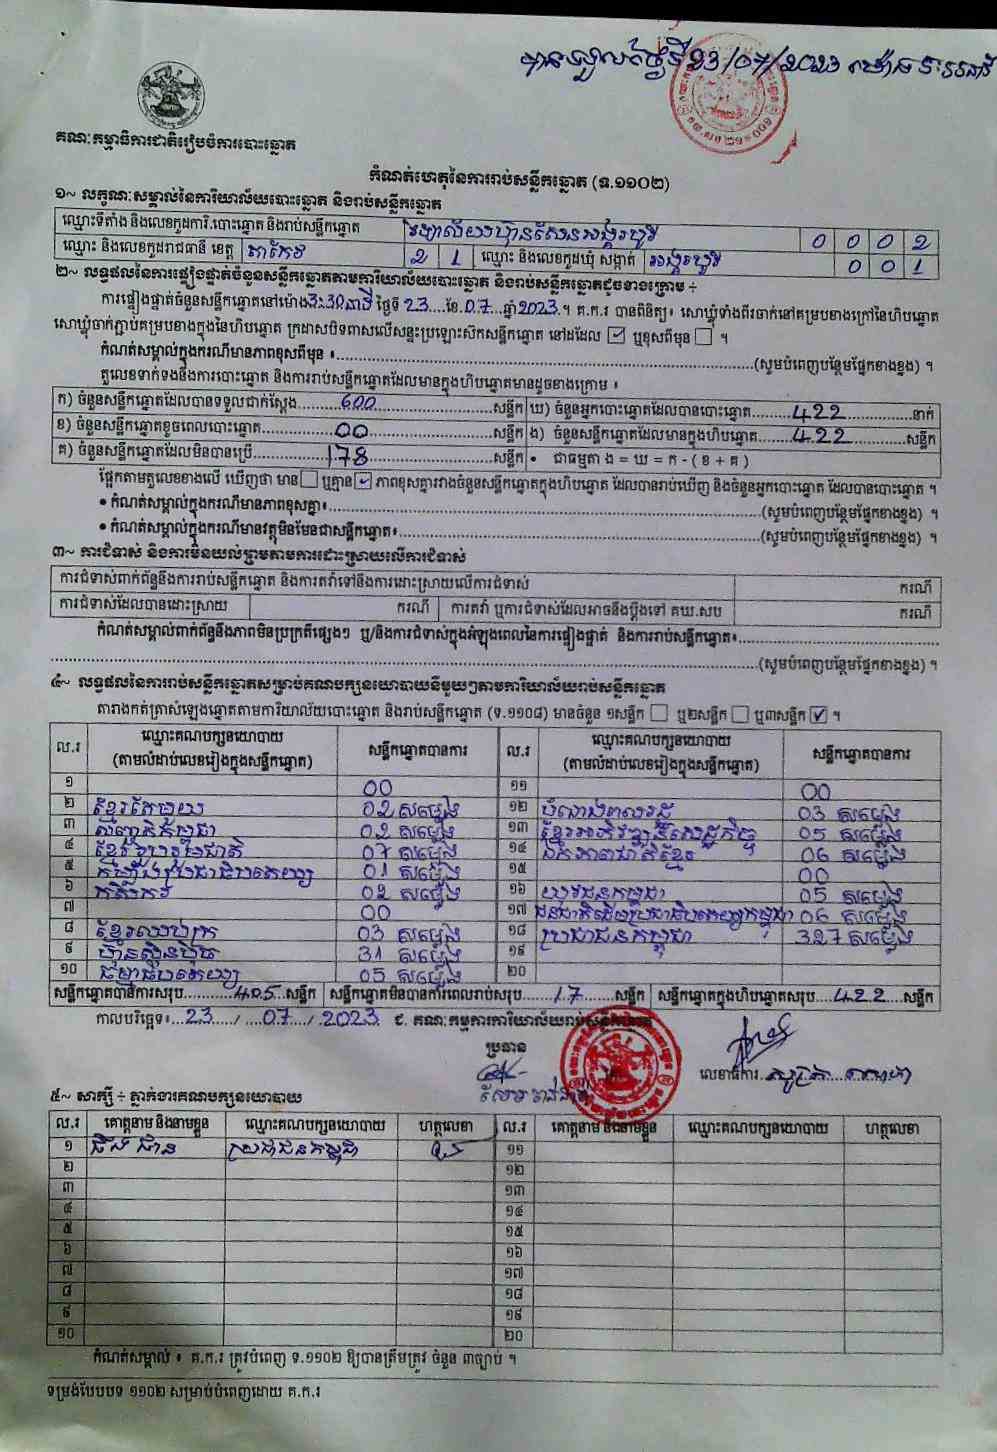 បានទទួលថ្ងៃទី 23/07/2023 ម៉ោង
គណៈកម្មាធិការជាតិរៀបចំការបោះឆ្នោត
កំណត់ហេតុនៃការរាប់សន្លឹកឆ្នោត (ទ.១១០២)
១~ លក្ខណៈសម្គាល់នៃការិយាល័យបោះឆ្នោត និងរាប់សន្លឹកឆ្នោត
ឈ្មោះទីតាំង និងលេខកូដការិ.បោះឆ្នោត និងរាប់សន្លឹកឆ្នោត វិទ្យាល័យហ៊ុនសែនអង្គរបូរី 0 0 0 2
ឈ្មោះ និងលេខកូដរាជធានី ខេត្ត តាកែវ 2 1 ឈ្មោះ និងលេខកូដឃុំ សង្កាត់ អង្គរបូរី 0 0 1
២~ លទ្ធផលនៃការផ្ទៀងផ្ទាត់ចំនួនសន្លឹកឆ្នោតតាមការិយាល័យបោះឆ្នោត និងរាប់សន្លឹកឆ្នោតដូចខាងក្រោម ÷
ការផ្ទៀងផ្ទាត់ចំនួនសន្លឹកឆ្នោតនៅម៉ោង 3:30នាទី ថ្ងៃទី 23 ខែ 07 ឆ្នាំ 2023 ។ គ.ក.រ បានពិនិត្យ៖ សោឃ្លុំទាំងពីរចាក់នៅគម្របខាងក្រៅនៃហិបឆ្នោត
សោឃ្លុំចាក់ភ្ជាប់គម្របខាងក្នុងនៃហិបឆ្នោត ក្រដាសបិទពាសលើសន្ទះប្រឡោះសិកសន្លឹកឆ្នោត នៅដដែល ☑ ឬខុសពីមុន ☐ ។
កំណត់សម្គាល់ក្នុងករណីមានភាពខុសពីមុន ៖ (សូមបំពេញបន្ថែមផ្នែកខាងខ្នង) ។
តួលេខទាក់ទងនឹងការបោះឆ្នោត និងការរាប់សន្លឹកឆ្នោតដែលមានក្នុងហិបឆ្នោតមានដូចខាងក្រោម ៖
ក) ចំនួនសន្លឹកឆ្នោតដែលបានទទួលជាក់ស្តែង 600 សន្លឹក ឃ) ចំនួនអ្នកបោះឆ្នោតដែលបានបោះឆ្នោត 422 នាក់
ខ) ចំនួនសន្លឹកឆ្នោតខូចពេលបោះឆ្នោត 00 សន្លឹក ង) ចំនួនសន្លឹកឆ្នោតដែលមានក្នុងហិបឆ្នោត 422 សន្លឹក
គ) ចំនួនសន្លឹកឆ្នោតដែលមិនបានប្រើ 178 សន្លឹក • ជាធម្មតា ង = ឃ = ក - ( ខ + គ )
ផ្អែកតាមតួលេខខាងលើ ឃើញថា មាន ☐ ឬគ្មាន ☑ ភាពខុសគ្នារវាងចំនួនសន្លឹកឆ្នោតក្នុងហិបឆ្នោត ដែលបានរាប់ឃើញ និងចំនួនអ្នកបោះឆ្នោត ដែលបានបោះឆ្នោត ។
• កំណត់សម្គាល់ក្នុងករណីមានភាពខុសគ្នា៖ (សូមបំពេញបន្ថែមផ្នែកខាងខ្នង) ។
• កំណត់សម្គាល់ក្នុងករណីមានវត្ថុមិនមែនជាសន្លឹកឆ្នោត៖ (សូមបំពេញបន្ថែមផ្នែកខាងខ្នង) ។
៣~ ការជំទាស់ និងការមិនយល់ព្រមតាមការដោះស្រាយលើការជំទាស់
ការជំទាស់ពាក់ព័ន្ធនឹងការរាប់សន្លឹកឆ្នោត និងការតវ៉ាទៅនឹងការដោះស្រាយលើការជំទាស់ ករណី
ការជំទាស់ដែលបានដោះស្រាយ ករណី ការតវ៉ា ឬការជំទាស់ដែលអាចនឹងប្តឹងទៅ គឃ.សប ករណី
កំណត់សម្គាល់ពាក់ព័ន្ធនឹងភាពមិនប្រក្រតីផ្សេងៗ ឬ/និងការជំទាស់ក្នុងអំឡុងពេលនៃការផ្ទៀងផ្ទាត់ និងការរាប់សន្លឹកឆ្នោត៖
(សូមបំពេញបន្ថែមផ្នែកខាងខ្នង) ។
៤~ លទ្ធផលនៃការរាប់សន្លឹកឆ្នោតសម្រាប់គណបក្សនយោបាយនីមួយៗតាមការិយាល័យរាប់សន្លឹកឆ្នោត
តារាងកត់ត្រាសំឡេងឆ្នោតតាមការិយាល័យបោះឆ្នោត និងរាប់សន្លឹកឆ្នោត (ទ.១១០៨) មានចំនួន ១សន្លឹក ☐ ឬ២សន្លឹក ☐ ឬ៣សន្លឹក ☑ ។
ល.រ ឈ្មោះគណបក្សនយោបាយ (តាមលំដាប់លេខរៀងក្នុងសន្លឹកឆ្នោត) សន្លឹកឆ្នោតបានការ ល.រ ឈ្មោះគណបក្សនយោបាយ (តាមលំដាប់លេខរៀងក្នុងសន្លឹកឆ្នោត) សន្លឹកឆ្នោតបានការ
១ 00 ១១ 00
២ ខ្មែរតែមួយ 02 សម្លេង ១២ បំរើរាស្ត្រ 03 សម្លេង
៣ សញ្ជាតិកម្ពុជា 02 សម្លេង ១៣ ខ្មែរអភិវឌ្ឍន៍សេដ្ឋកិច្ច 05 សម្លេង
៤ ខ្មែររួបរួមជាតិ 07 សម្លេង ១៤ ឯកភាពជាតិខ្មែរ 06 សម្លេង
៥ កម្លាំងប្រជាធិបតេយ្យ 01 សម្លេង ១៥ 00
៦ កសិករ 02 សម្លេង ១៦ យុវជនកម្ពុជា 05 សម្លេង
៧ 00 ១៧ ជនជាតិដើមប្រជាធិបតេយ្យកម្ពុជា 06 សម្លេង
៨ ខ្មែរឈប់ក្រ 03 សម្លេង ១៨ ប្រជាជនកម្ពុជា 327 សម្លេង
៩ ហ៊្វុនស៊ិនប៉ិច 31 សម្លេង ១៩
១០ ធម្មាធិបតេយ្យ 05 សម្លេង ២០
សន្លឹកឆ្នោតបានការសរុប 405 សន្លឹក សន្លឹកឆ្នោតមិនបានការពេលរាប់សរុប 17 សន្លឹក សន្លឹកឆ្នោតក្នុងហិបឆ្នោតសរុប 422 សន្លឹក
កាលបរិច្ឆេទ៖ 23 / 07 / 2023 ជ. គណៈកម្មការការិយាល័យរាប់សន្លឹកឆ្នោត
ប្រធាន
លេខាធិការ
៥~ សាក្សី ÷ ភ្នាក់ងារគណបក្សនយោបាយ
ល.រ គោត្តនាម និងនាមខ្លួន ឈ្មោះគណបក្សនយោបាយ ហត្ថលេខា ល.រ គោត្តនាម និងនាមខ្លួន ឈ្មោះគណបក្សនយោបាយ ហត្ថលេខា
១ ប្រជាជនកម្ពុជា ១១
២ ១២
៣ ១៣
៤ ១៤
៥ ១៥
៦ ១៦
៧ ១៧
៨ ១៨
៩ ១៩
១០ ២០
កំណត់សម្គាល់ ៖ គ.ក.រ ត្រូវបំពេញ ទ.១១០២ ឱ្យបានត្រឹមត្រូវ ចំនួន ៣ច្បាប់ ។
ទម្រង់បែបបទ ១១០២ សម្រាប់បំពេញដោយ គ.ក.រ